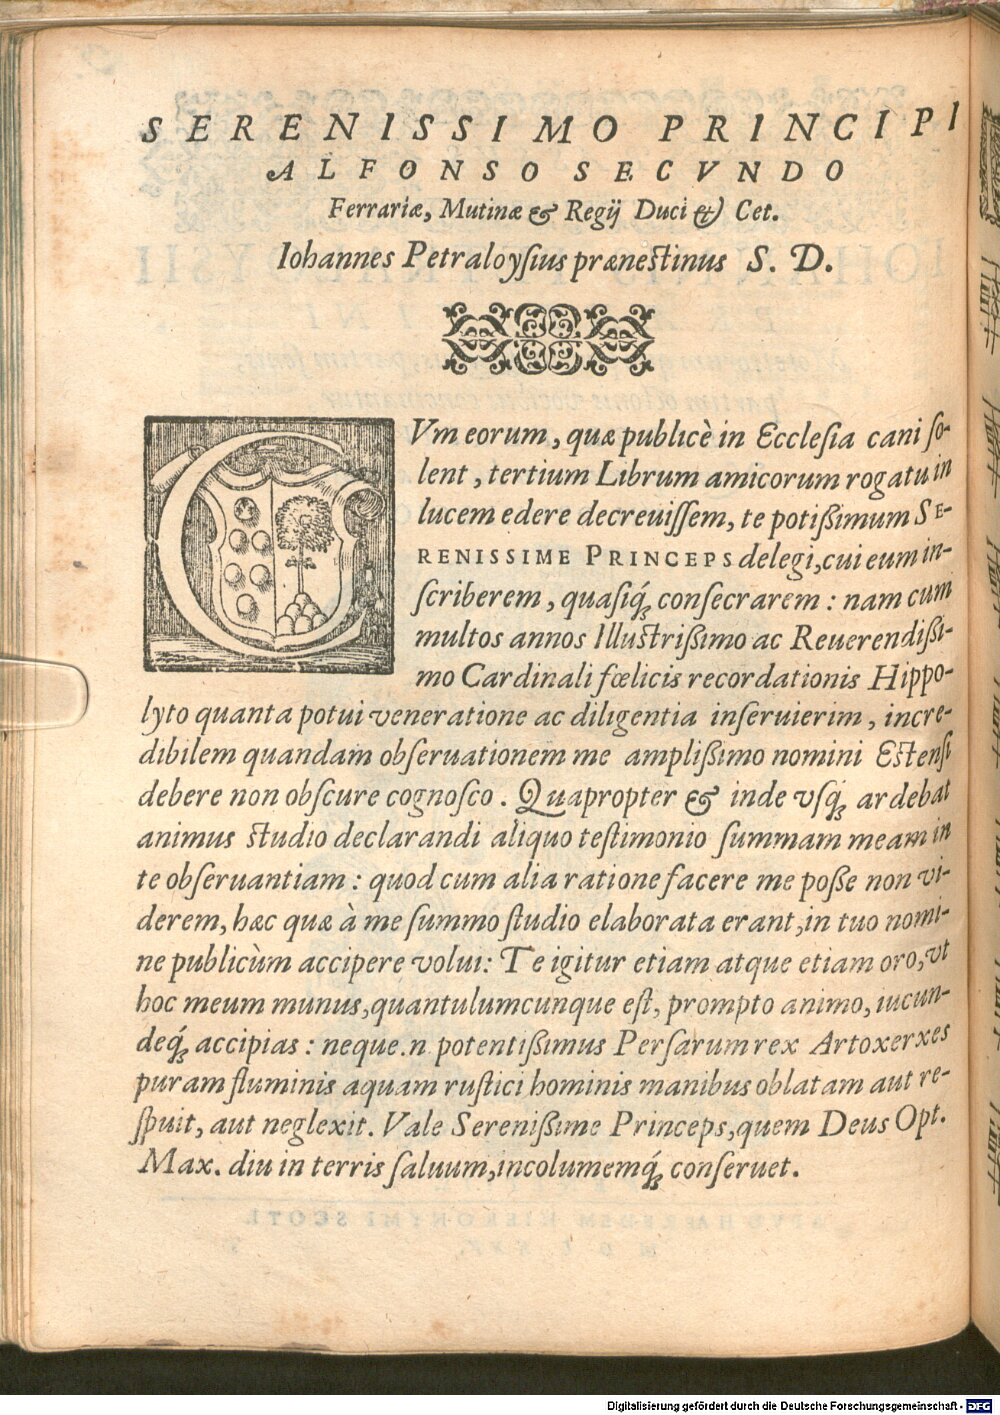 SERENISSIMO PRINCIPI
ALFONSO SECVNDO
Ferrariæ, Mutinæ & Regij Duci & Cet.
Iohannes Petraloysius prænestinus S. D.
CVm eorum, quæ publicè in Ecclesia cani so-
lent, tertium Librum amicorum rogatu in
lucem edere decreuissem, te potißimum SE-
RENISSIME PRINCEPS delegi, cui eum in-
scriberem, quasiq́; consecrarem: nam cum
multos annos Illustrißimo ac Reuerendißi-
mo Cardinali fœlicis recordationis Hippo-
lyto quanta potui veneratione ac diligentia inseruierim, incre-
dibilem quandam obseruationem me amplißimo nomini Estensi
debere non obscure cognosco. Quapropter & inde vsq́; ardebat
animus studio declarandi aliquo testimonio summam meam in
te obseruantiam: quod cum alia ratione facere me poße non vi-
derem, hæc quæ à me summo studio elaborata erant, in tuo nomi-
ne publicùm accipere volui: Te igitur etiam atque etiam oro, vt
hoc meum munus, quantulumcunque est, prompto animo, iucun-
deq́; accipias: neque.n potentißimus Persarum rex Artoxerxes
puram fluminis aquam rustici hominis manibus oblatam aut re-
spuit, aut neglexit. Vale Serenißime Princeps, quem Deus Opt.
Max. diu in terris saluum, incolumemq́; conseruet.
Digitalisierung gefördert durch die Deutsche Forschungsgemeinschaft - DFG